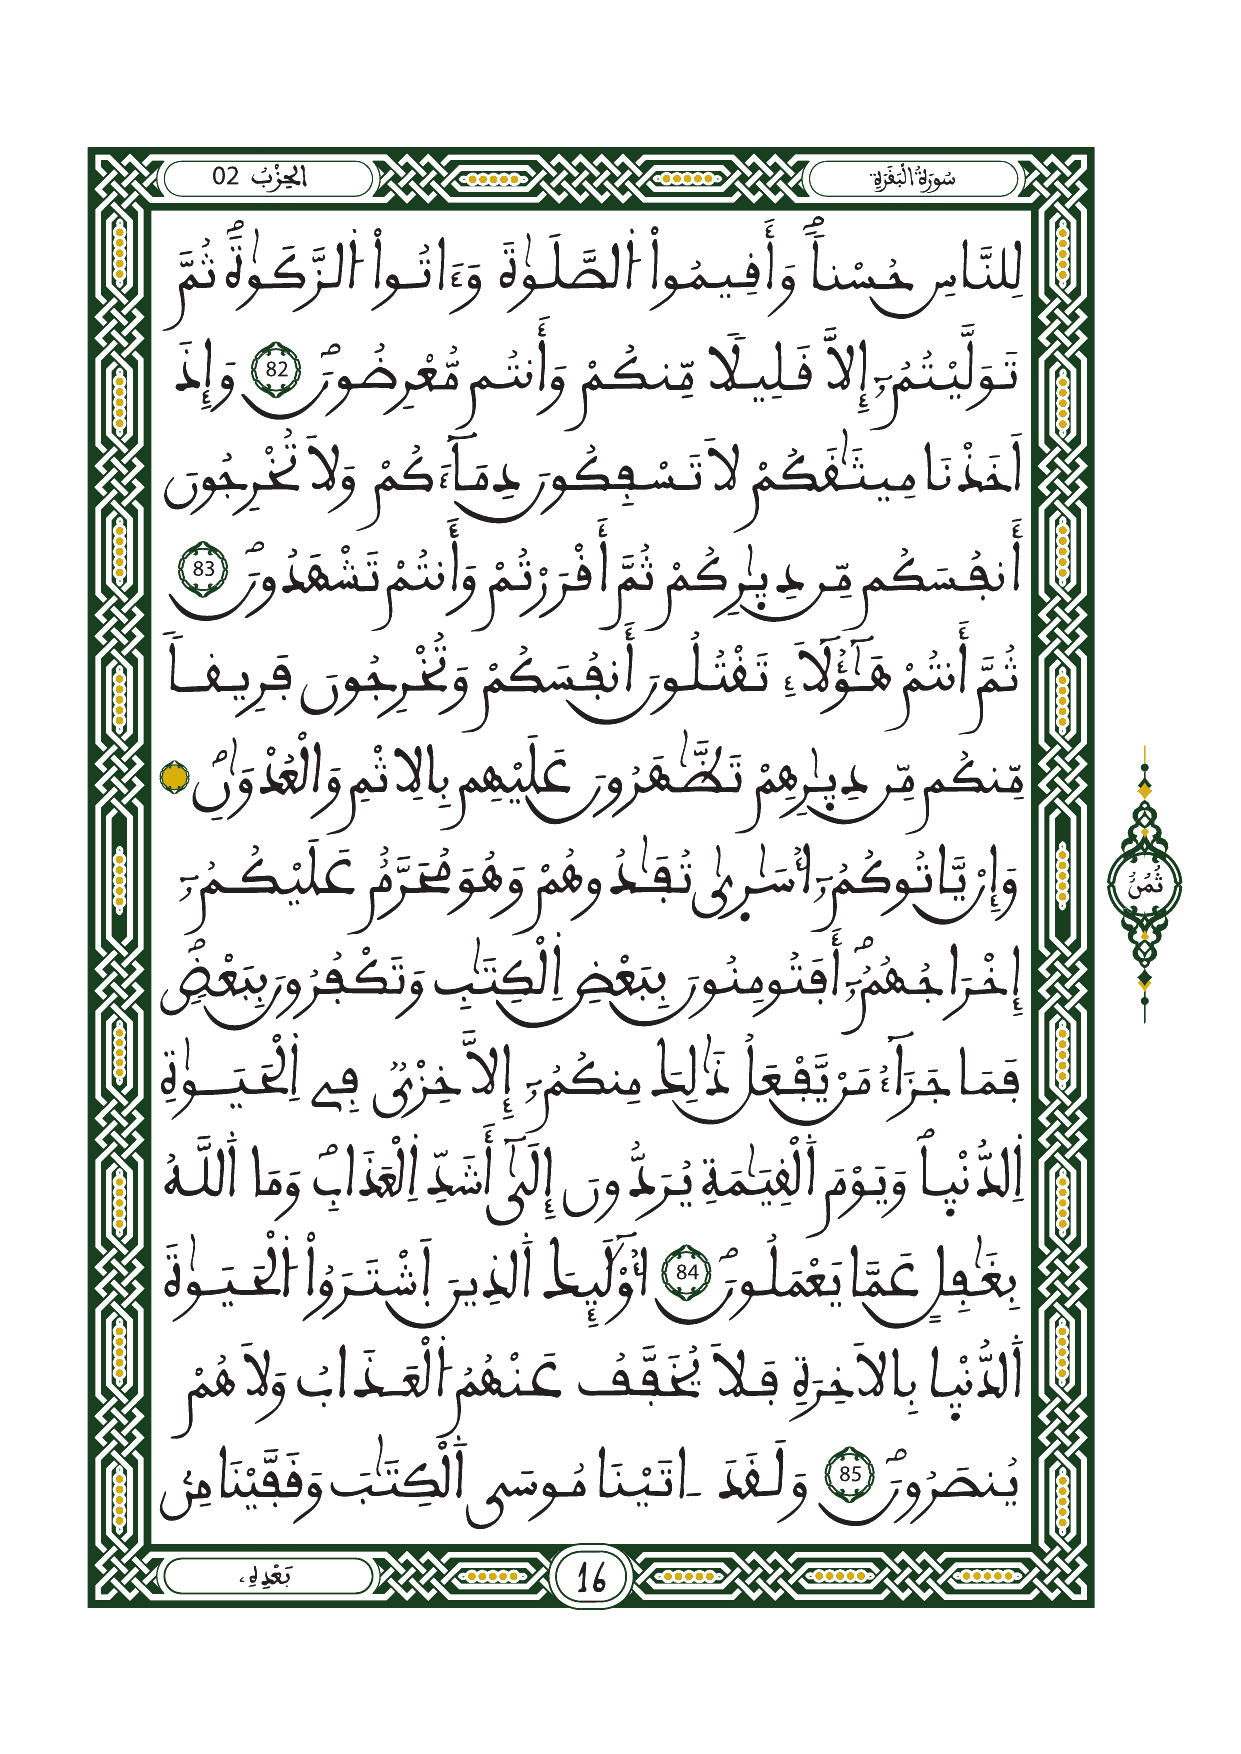 سُورَةُ الْبَقَرَةِ
الْحِزْبُ 02
لِلنَّاسِ حُسْناً وَأَقِيمُواْ اُ۬لصَّلَوٰةَ وَءَاتُواْ اُ۬لزَّكَوٰةَۖ ثُمَّ
تَوَلَّيْتُمُۥٓ إِلاَّ قَلِيلاٗ مِّنكُمْ وَأَنتُم مُّعْرِضُونَۖ 82 وَإِذَ
اَخَذْنَا مِيثَٰقَكُمْ لاَ تَسْفِكُونَ دِمَآءَكُمْ وَلاَ تُخْرِجُونَ
أَنفُسَكُم مِّن دِيٰ۪رِكُمْ ثُمَّ أَقْرَرْتُمْ وَأَنتُمْ تَشْهَدُونَۖ 83
ثُمَّ أَنتُمْ هَٰٓؤُلَآءِ تَقْتُلُونَ أَنفُسَكُمْ وَتُخْرِجُونَ فَرِيقاٗ
مِّنكُم مِّن دِيٰ۪رِهِمْ تَظَّٰهَرُونَ عَلَيْهِم بِالِاثْمِ وَالْعُدْوَٰنِۖ
وَإِنْ يَّاتُوكُمُۥٓ أُسَٰر۪يٰ تُفَٰدُوهُمْ وَهُوَ مُحَرَّمٌ عَلَيْكُمُۥٓ
إِخْرَاجُهُمُۥٓۖ أَفَتُومِنُونَ بِبَعْضِ اِ۬لْكِتَٰبِ وَتَكْفُرُونَ بِبَعْضٖۖ
فَمَا جَزَآءُ مَنْ يَّفْعَلُ ذَٰلِكَ مِنكُمُۥٓ إِلاَّ خِزْيٞ فِے اِ۬لْحَيَوٰةِ
اِ۬لدُّنْي۪اۖ وَيَوْمَ اَ۬لْقِيَٰمَةِ يُرَدُّونَ إِلَيٰٓ أَشَدِّ اِ۬لْعَذَابِۖ وَمَا اَ۬للَّهُ
بِغَٰفِلٍ عَمَّا يَعْمَلُونَۖ 84 أُوْلَٰٓئِكَ اَ۬لذِينَ اَ۪شْتَرَوُاْ اُ۬لْحَيَوٰةَ
اَ۬لدُّنْي۪ا بِالاَخِرَةِ فَلاَ يُخَفَّفُ عَنْهُمُ اُ۬لْعَذَابُ وَلاَ هُمْ
يُنصَرُونَۖ 85 وَلَقَدَ ـ اتَيْنَا مُوسَي اَ۬لْكِتَٰبَ وَقَفَّيْنَا مِنۢ
ثُمُنُ
بَعْدِهِۦ
16